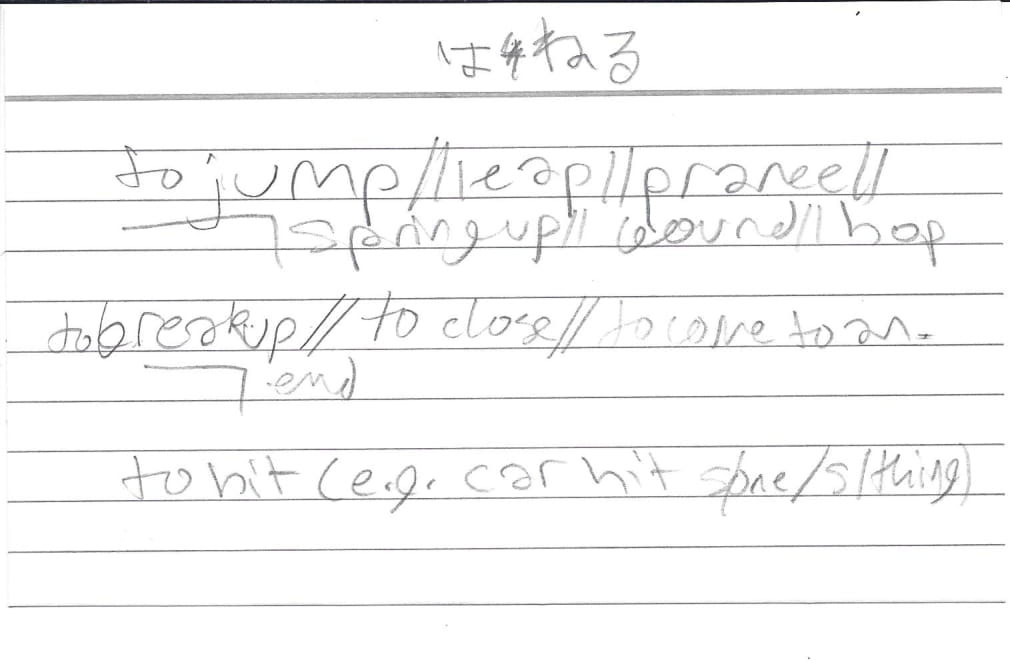 はねる
to jump//leap//prancee//
spring up//bound//hop
to break up//to close//to come to an-
end
to hit (e.g. car hit s/one/s/thing)